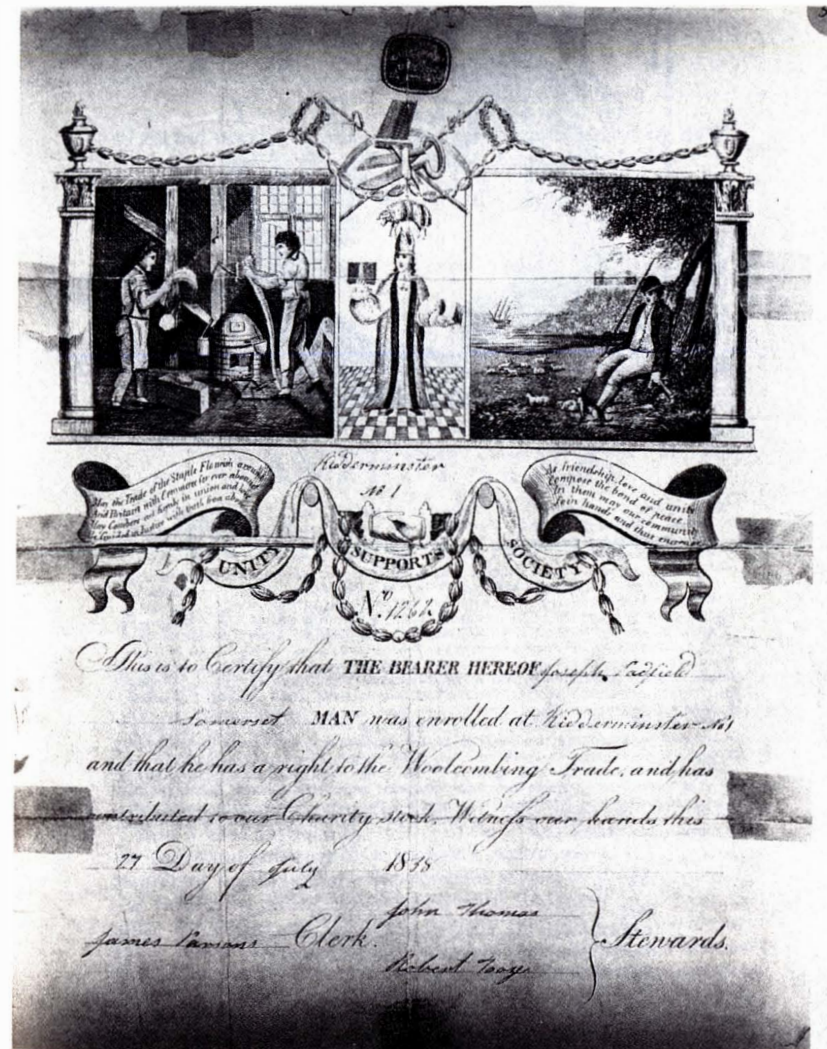 May the Trade of the Staple Flourish around
And Britain with Commerce for ever abound
May Combers out happy in union and
in Justice with both
As friendship, love, and unity
Compose the bond of peace
In them may our community
Join hands and thus
Kidderminster
No 1
UNITY SUPPORTS SOCIETY
No. 1262
This is to Certify that THE BEARER HEREOF Joseph Padfield
Somerset MAN was enrolled at Kidderminster No 1
and that he has a right to the Woolcombing Trade, and has
contributed to our Charity stock. Witness our hands this
27 Day of July 1838
John Thomas
James Parsons Clerk. Stewards.
Robert